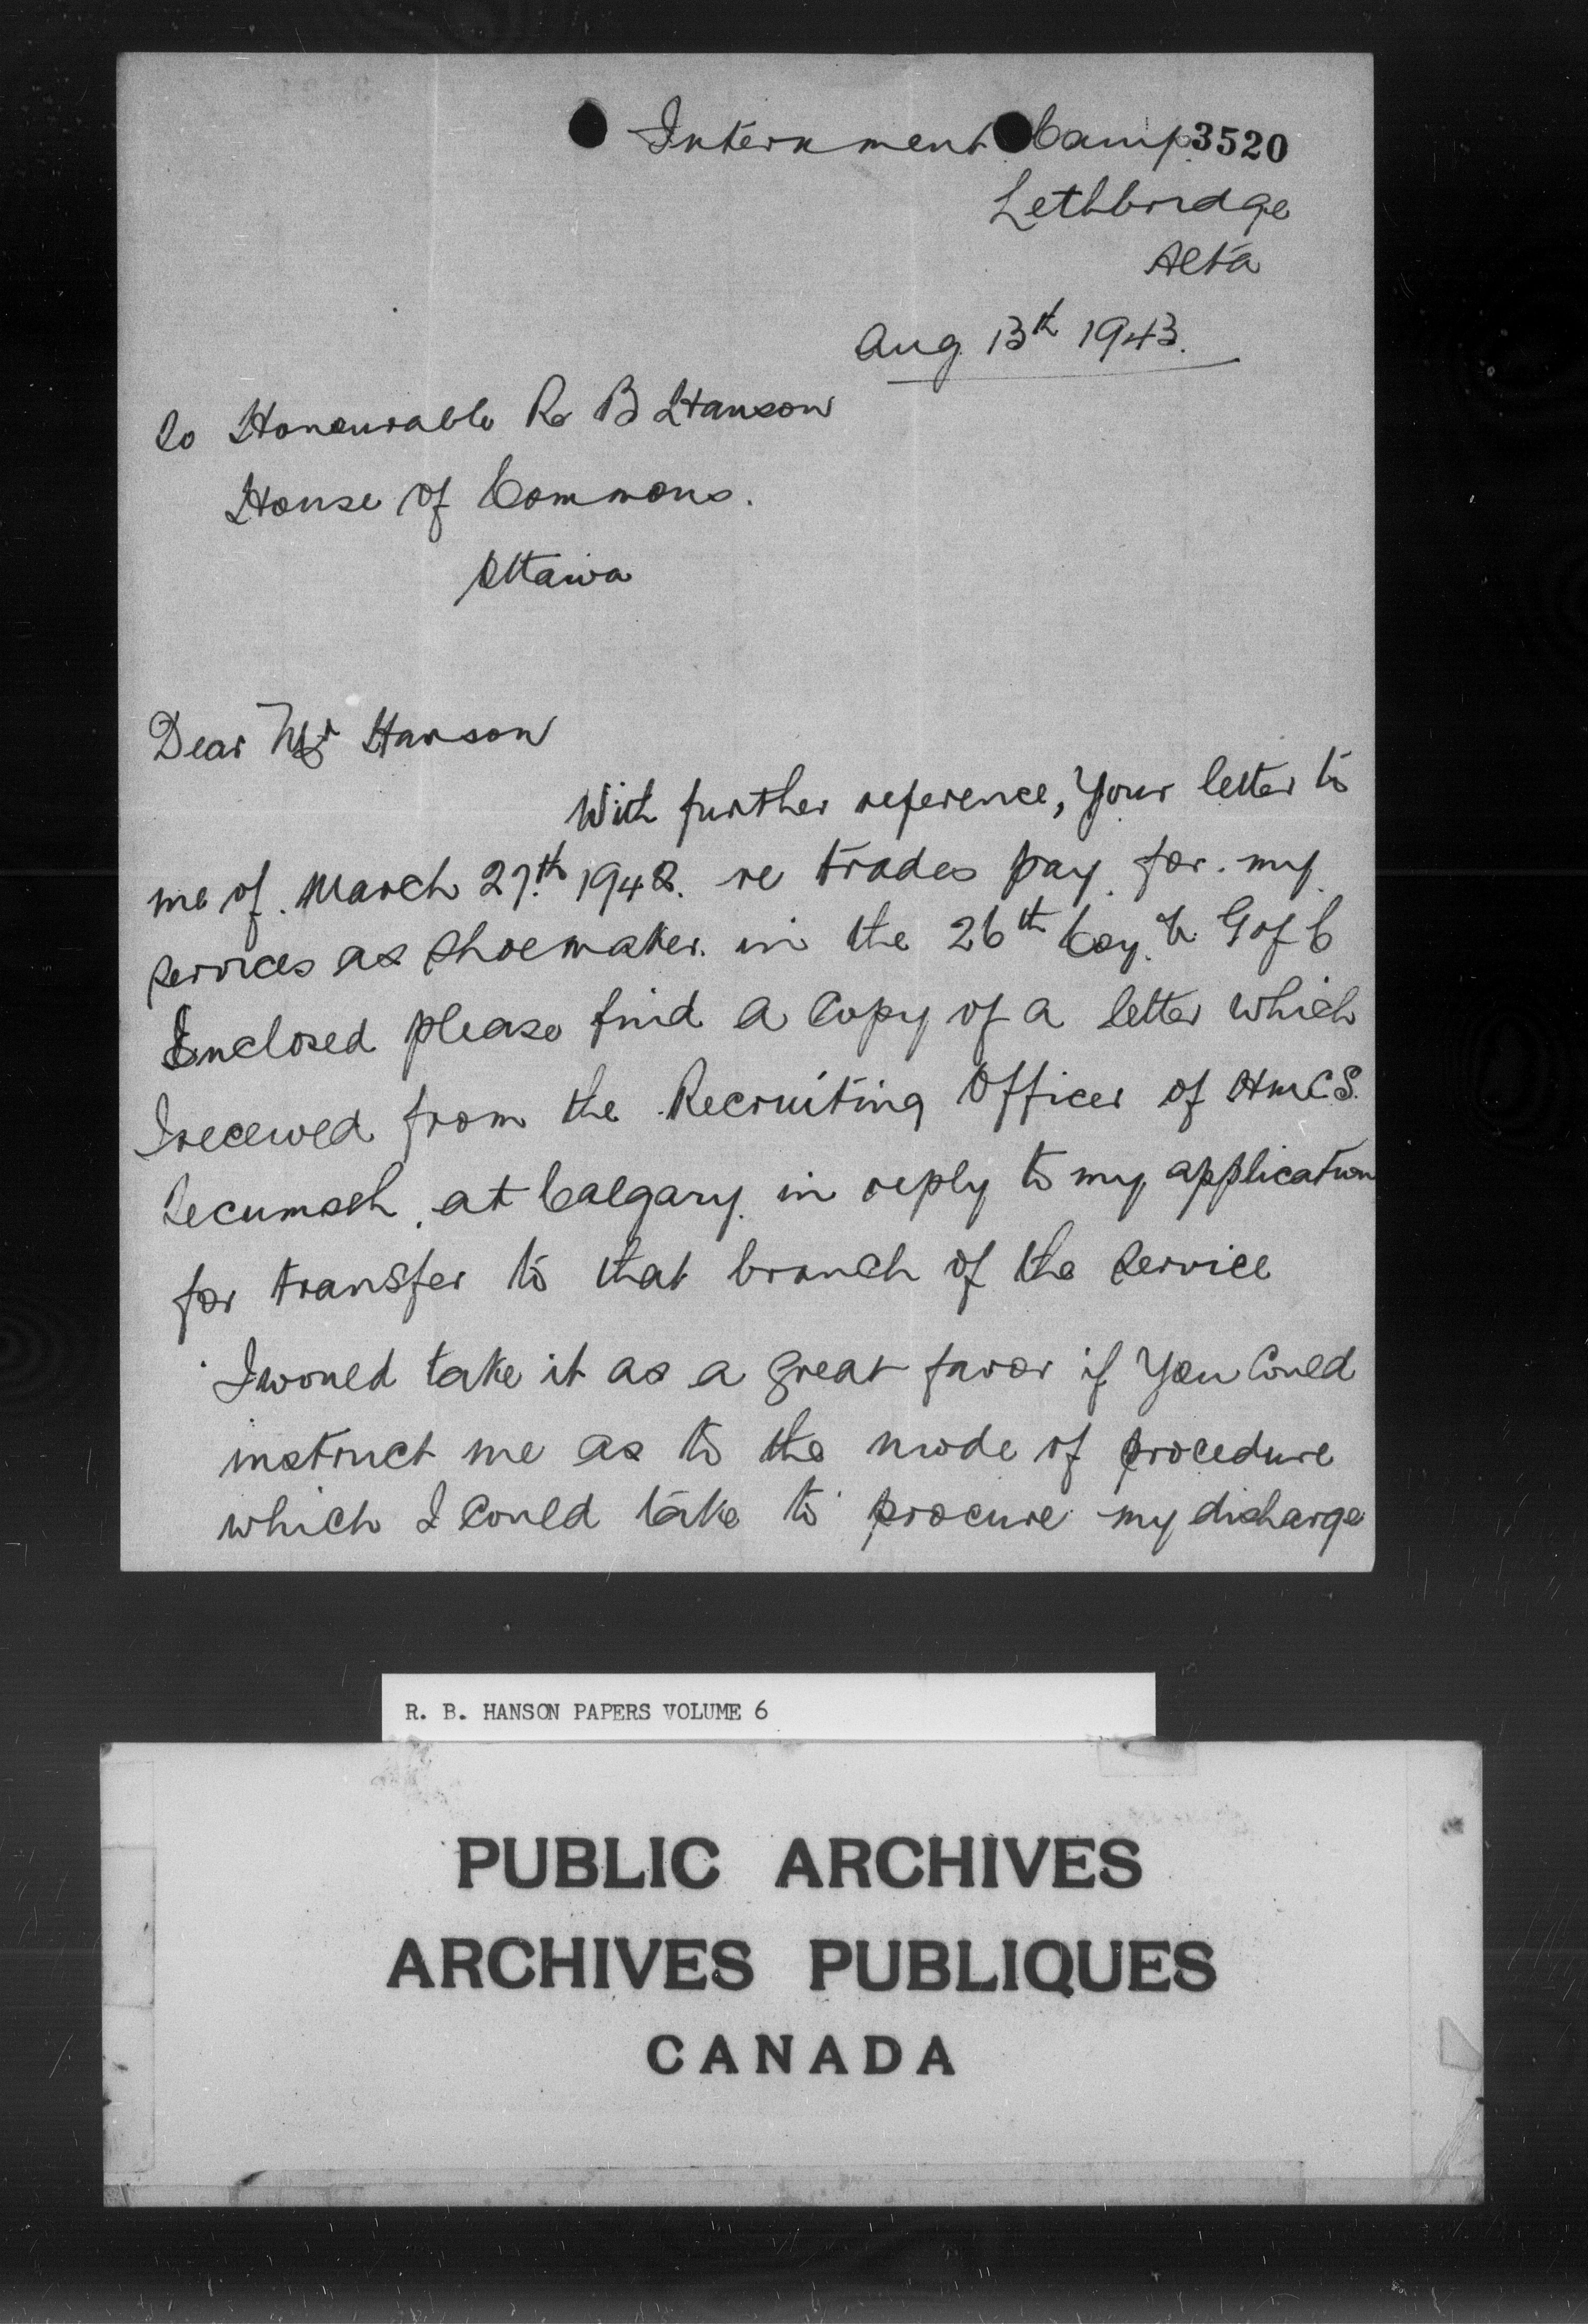 Internment Camp 3520
Lethbridge
Alta
Aug 13th 1943.
To Honourable R B Hanson
House of Commons.
Ottawa
Dear Mr Hanson
With further reference, Your letter to
me of. March 27th 1942. re trades pay. for. my
services as shoemaker. in the 26th Coy. V. G of C
Enclosed please find a Copy of a letter which
I received from the Recruiting Officer of HMCS.
Tecumseh, at Calgary. in reply to my application
for transfer to that branch of the service
I would take it as a great favor if You Could
instruct me as to the mode of procedure
which I Could take to procure my discharge
R. B. HANSON PAPERS VOLUME 6
PUBLIC ARCHIVES
ARCHIVES PUBLIQUES
CANADA